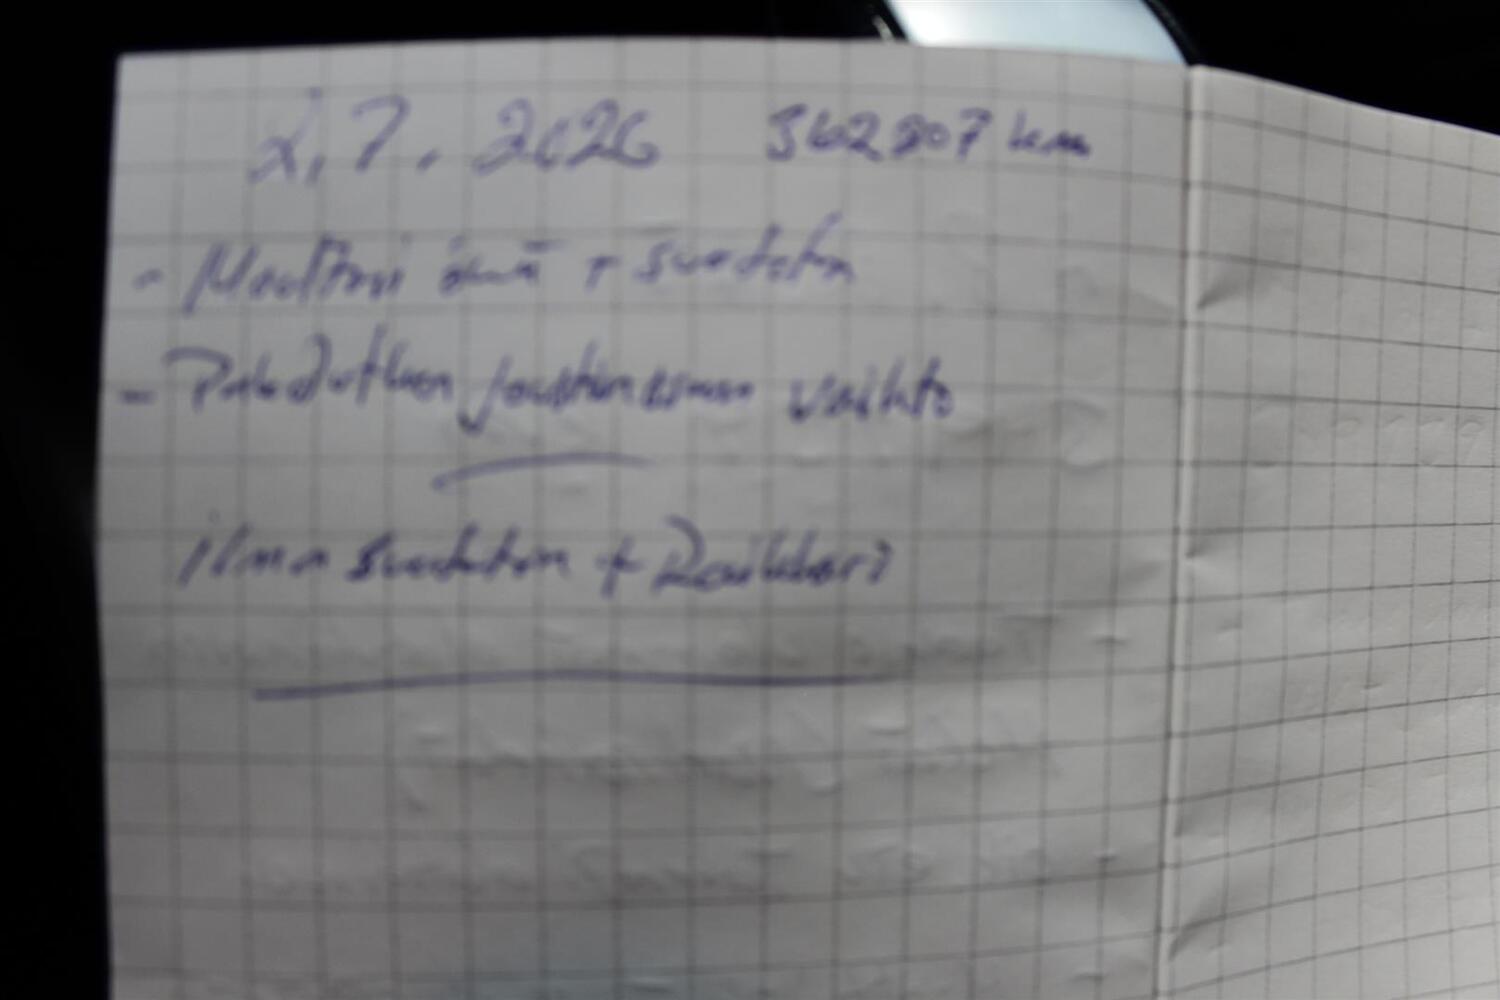 2.7.2026 362807 km
- Moottori öljyt + suodatin
- Pakoputken joustinosan vaihto
ilma suodatin + Raikkari